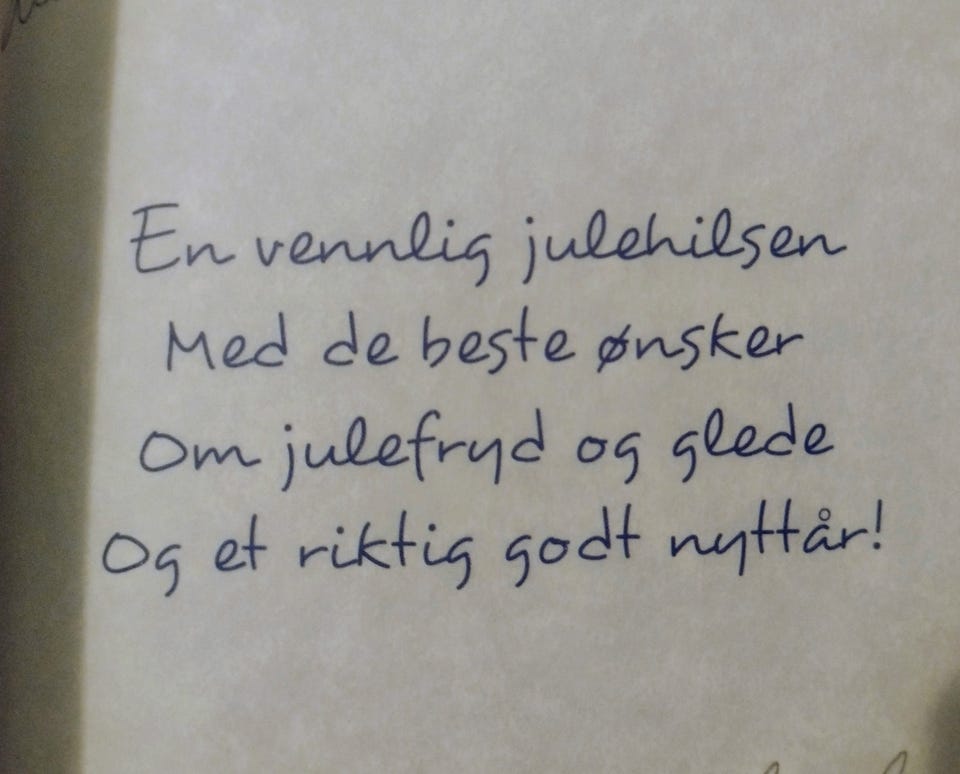 En vennlig julehilsen
Med de beste ønsker
Om julefryd og glede
Og et riktig godt nyttår!